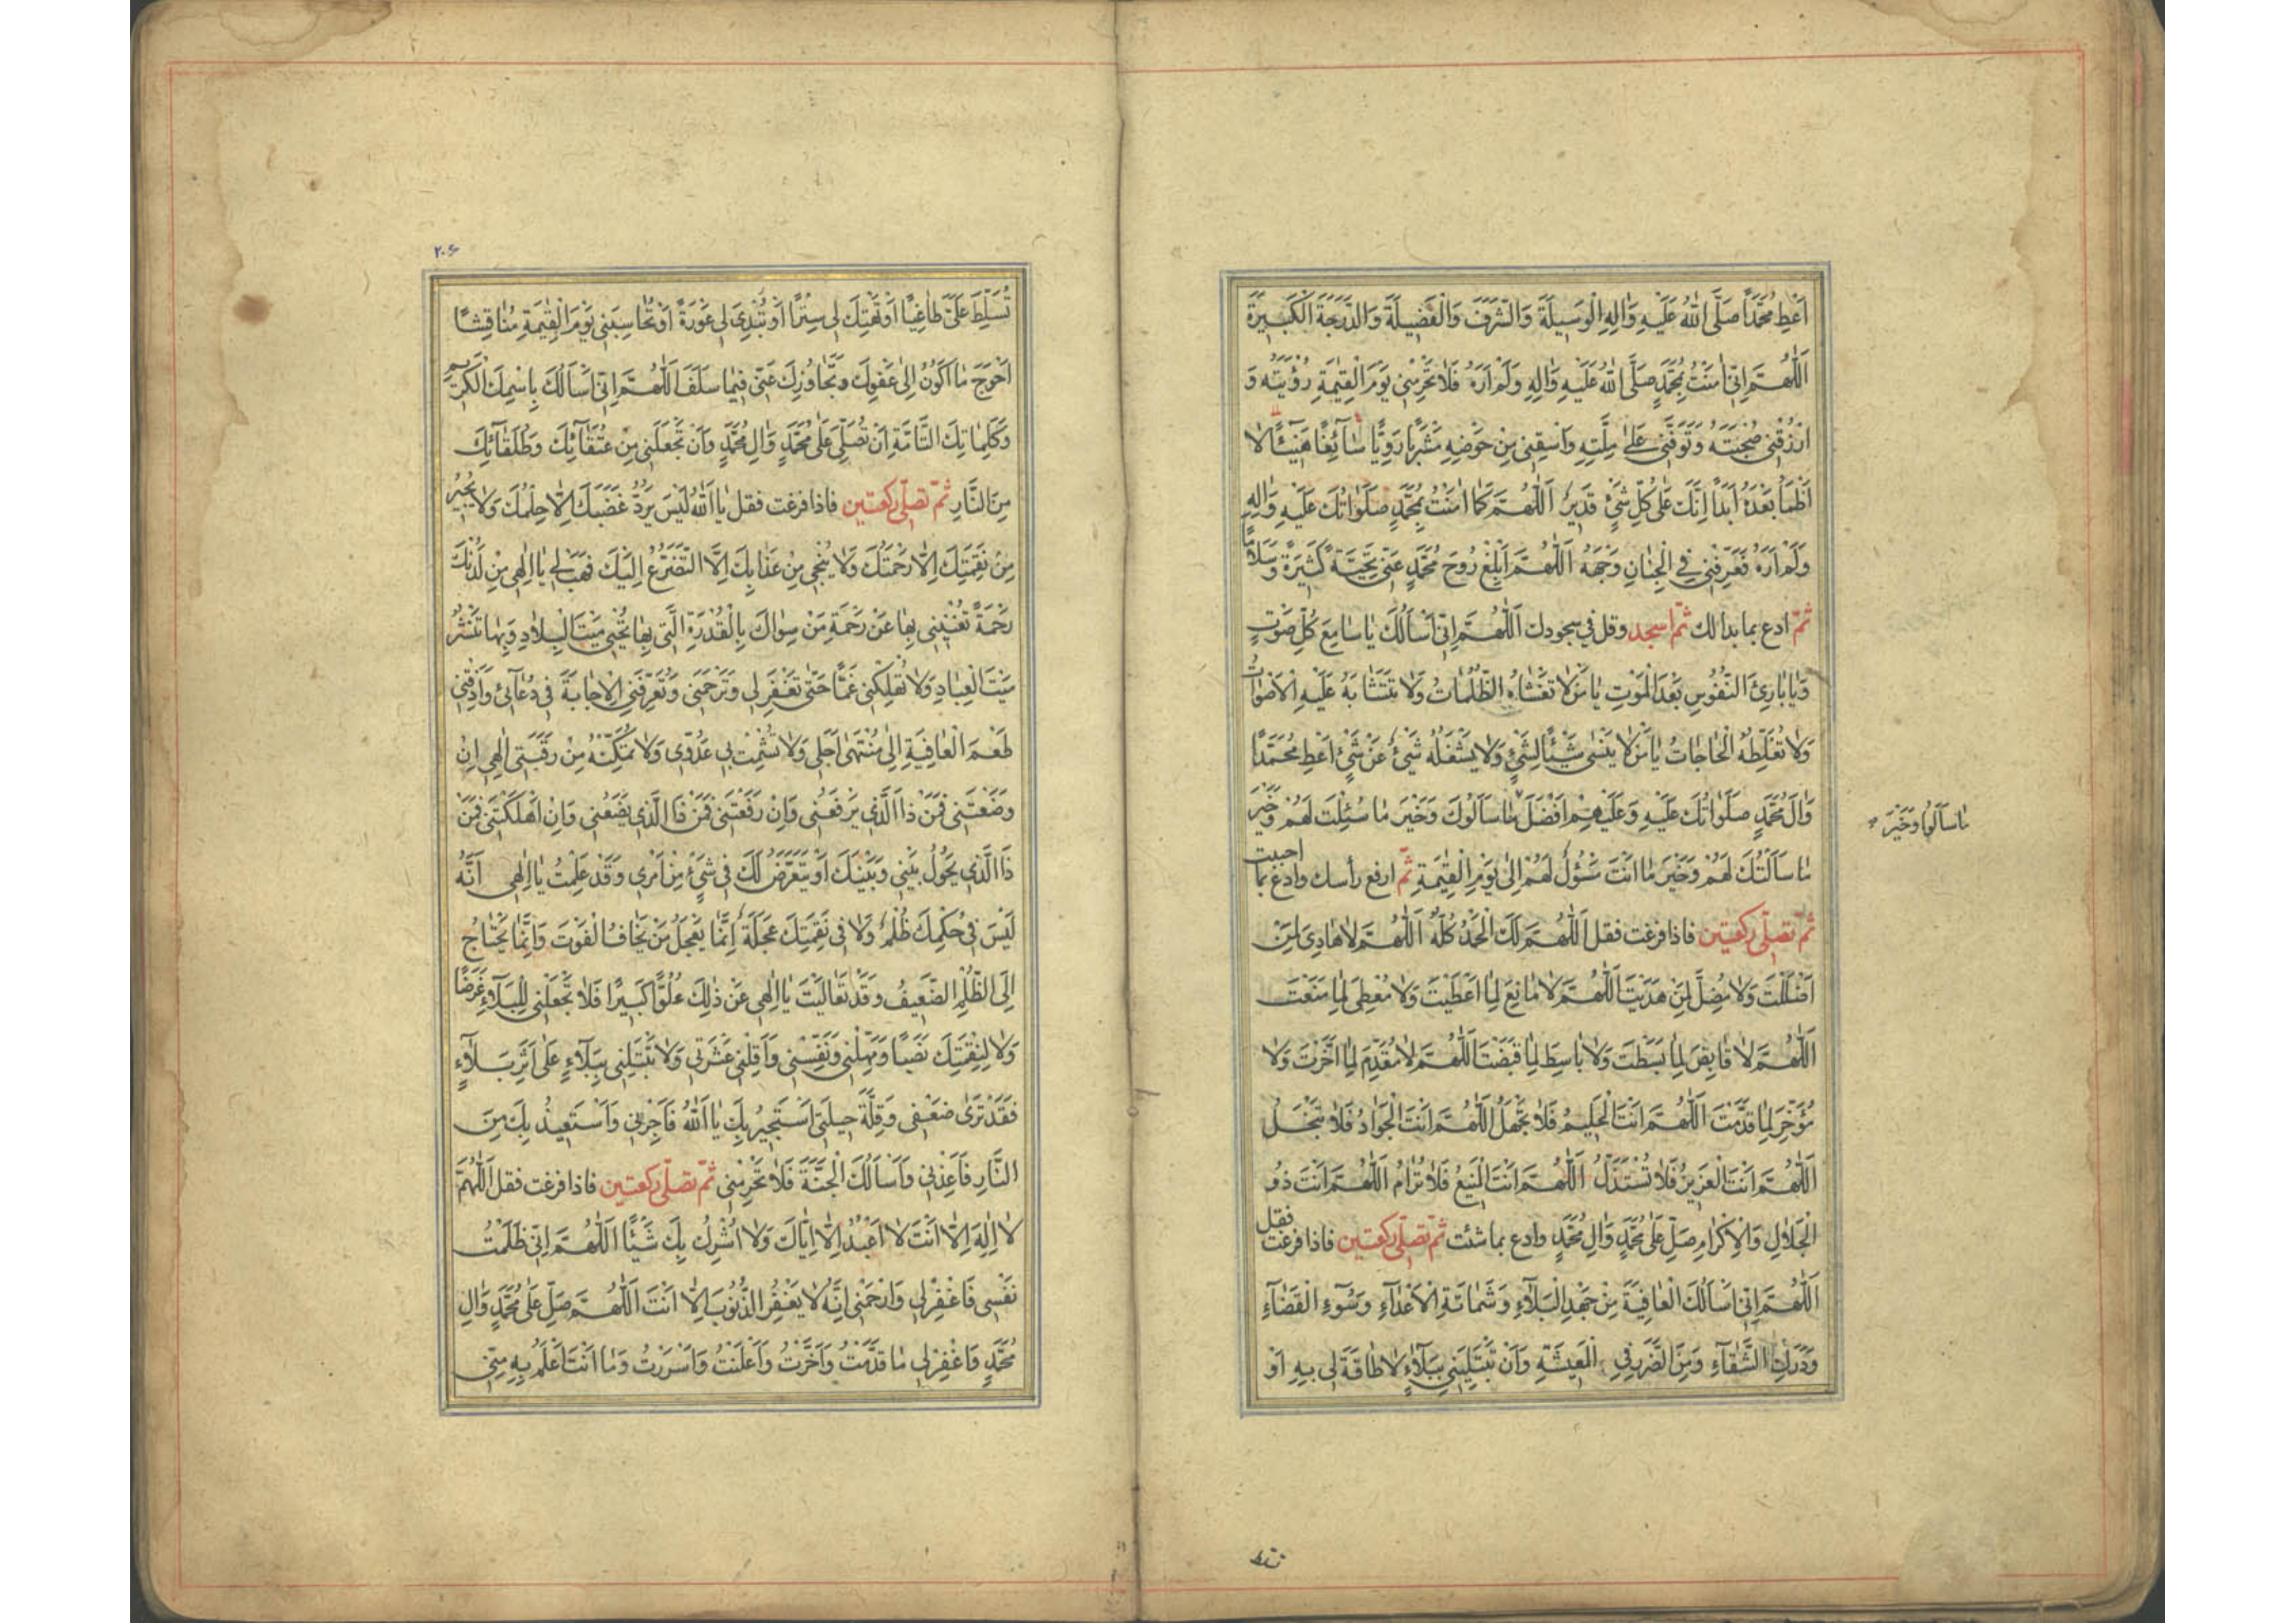 اَعْطِ مُحَمَّدًا صَلَّى اللّٰهُ عَلَيْهِ وَاٰلِهِ الْوَسِيلَةَ وَالشَّرَفَ وَالْفَضِيلَةَ وَالدَّرَجَةَ الْكَبِيرَةَ
اَللّٰهُمَّ اِنّى اٰمَنْتُ بِمُحَمَّدٍ صَلَّى اللّٰهُ عَلَيْهِ وَاٰلِهِ وَلَمْ اَرَهُ فَلاٰ تَحْرِمْنِى يَوْمَ الْقِيٰمَةِ رُؤْيَتَهُ وَ
ارْزُقْنِى صُحْبَتَهُ وَتَوَفَّنِى عَلىٰ مِلَّتِهِ وَاسْقِنِى مِنْ حَوْضِهِ مَشْرَبًا رَوِيًّا سٰآئِغًا هَنِيٓئًا لاٰ
اَظْمَأُ بَعْدَهُ اَبَدًا اِنَّكَ عَلىٰ كُلِّ شَيْءٍ قَدِيرٌ اَللّٰهُمَّ كَمٰا اٰمَنْتُ بِمُحَمَّدٍ صَلَوٰاتُكَ عَلَيْهِ وَاٰلِهِ
وَلَمْ اَرَهُ فَعَرِّفْنِى فِى الْجِنٰانِ وَجْهَهُ اَللّٰهُمَّ اَبْلِغْ رُوحَ مُحَمَّدٍ عَنّى تَحِيَّةً كَثِيرَةً وَسَلاٰمًا
ثمّ ادع بما بدا لك ثمّ اسجد وقل فى سجودك اَللّٰهُمَّ اِنّى اَسْأَلُكَ يٰا سٰامِعَ كُلِّ صَوْتٍ
وَيٰا بٰارِئَ النُّفُوسِ بَعْدَ الْمَوْتِ يٰا مَنْ لاٰ تَغْشٰاهُ الظُّلُمٰاتُ وَلاٰ تَتَشٰابَهُ عَلَيْهِ الْاَصْوٰاتُ
وَلاٰ تُغَلِّطُهُ الْحٰاجٰاتُ يٰا مَنْ لاٰ يَنْسىٰ شَيْئًا لِشَيْءٍ وَلاٰ يَشْغَلُهُ شَيْءٌ عَنْ شَيْءٍ اَعْطِ مُحَمَّدًا
وَاٰلَ مُحَمَّدٍ صَلَوٰاتُكَ عَلَيْهِ وَعَلَيْهِمْ اَفْضَلَ مٰا سَأَلُوكَ وَخَيْرَ مٰا سُئِلْتَ لَهُمْ وَخَيْرَ
مٰا سَأَلْتُكَ لَهُمْ وَخَيْرَ مٰا اَنْتَ مَسْؤُلٌ لَهُمْ اِلىٰ يَوْمِ الْقِيٰمَةِ ثمّ ارفع رأسك وادع بما احببت
ثمّ تصلّى ركعتين فاذا فرغت فقل اَللّٰهُمَّ لَكَ الْحَمْدُ كُلُّهُ اَللّٰهُمَّ لاٰ هٰادِىَ لِمَنْ
اَضْلَلْتَ وَلاٰ مُضِلَّ لِمَنْ هَدَيْتَ اَللّٰهُمَّ لاٰ مٰانِعَ لِمٰا اَعْطَيْتَ وَلاٰ مُعْطِىَ لِمٰا مَنَعْتَ
اَللّٰهُمَّ لاٰ قٰابِضَ لِمٰا بَسَطْتَ وَلاٰ بٰاسِطَ لِمٰا قَبَضْتَ اَللّٰهُمَّ لاٰ مُقَدِّمَ لِمٰا اَخَّرْتَ وَلاٰ
مُؤَخِّرَ لِمٰا قَدَّمْتَ اَللّٰهُمَّ اَنْتَ الْحَلِيمُ فَلاٰ تَجْهَلُ اَللّٰهُمَّ اَنْتَ الْجَوٰادُ فَلاٰ تَبْخَلُ
اَللّٰهُمَّ اَنْتَ الْعَزِيزُ فَلاٰ تُسْتَذَلُّ اَللّٰهُمَّ اَنْتَ الْمَنِيعُ فَلاٰ تُرٰامُ اَللّٰهُمَّ اَنْتَ ذُو
الْجَلاٰلِ وَالْاِكْرٰامِ صَلِّ عَلىٰ مُحَمَّدٍ وَاٰلِ مُحَمَّدٍ وادع بما شئت ثمّ تصلّى ركعتين فاذا فرغت فقل
اَللّٰهُمَّ اِنّى اَسْأَلُكَ الْعٰافِيَةَ مِنْ جَهْدِ الْبَلٰآءِ وَشَمٰاتَةِ الْاَعْدٰآءِ وَسُوٓءِ الْقَضٰآءِ
وَدَرَكِ الشَّقٰآءِ وَمِنَ الضَّرَرِ فِى الْمَعِيشَةِ وَاَنْ تَبْتَلِيَنِى بِبَلٰآءٍ لاٰ طٰاقَةَ لِى بِهِ اَوْ
مٰا سَأَلُوكَ وَخَيْرَ
۲۰۶
تُسَلِّطَ عَلَىَّ طٰاغِيًا اَوْ تَهْتِكَ لِى سِتْرًا اَوْ تُبْدِىَ لِى عَوْرَةً اَوْ تُحٰاسِبَنِى يَوْمَ الْقِيٰمَةِ مُنٰاقِشًا
اَحْوَجَ مٰا اَكُونُ اِلىٰ عَفْوِكَ وَتَجٰاوُزِكَ عَنّى فِيمٰا سَلَفَ اَللّٰهُمَّ اِنّى اَسْأَلُكَ بِاسْمِكَ الْكَرِيمِ
وَكَلِمٰاتِكَ التّٰآمَّةِ اَنْ تُصَلِّىَ عَلىٰ مُحَمَّدٍ وَاٰلِ مُحَمَّدٍ وَاَنْ تَجْعَلَنِى مِنْ عُتَقٰآئِكَ وَطُلَقٰآئِكَ
مِنَ النّٰارِ ثمّ تصلّى ركعتين فاذا فرغت فقل يٰا اَللّٰهُ لَيْسَ يَرُدُّ غَضَبَكَ اِلّٰا حِلْمُكَ وَلاٰ يُجِيرُ
مِنْ نَقِمَتِكَ اِلّٰا رَحْمَتُكَ وَلاٰ يُنْجِى مِنْ عَذٰابِكَ اِلَّا التَّضَرُّعُ اِلَيْكَ فَهَبْ لِى يٰا اِلٰهِى مِنْ لَدُنْكَ
رَحْمَةً تُغْنِينِى بِهٰا عَنْ رَحْمَةِ مَنْ سِوٰاكَ بِالْقُدْرَةِ الَّتِى بِهٰا تُحْيِى مَيْتَ الْبِلاٰدِ وَبِهٰا تَنْشُرُ
مَيْتَ الْعِبٰادِ وَلاٰ تُهْلِكْنِى غَمًّا حَتّىٰ تَغْفِرَ لِى وَتَرْحَمَنِى وَتُعَرِّفَنِى الْاِجٰابَةَ فِى دُعٰآئِى وَاَذِقْنِى
طَعْمَ الْعٰافِيَةِ اِلىٰ مُنْتَهىٰ اَجَلِى وَلاٰ تُشْمِتْ بِى عَدُوّى وَلاٰ تُمَكِّنْهُ مِنْ رَقَبَتِى اِلٰهِى اِنْ
وَضَعْتَنِى فَمَنْ ذَا الَّذِى يَرْفَعُنِى وَاِنْ رَفَعْتَنِى فَمَنْ ذَا الَّذِى يَضَعُنِى وَاِنْ اَهْلَكْتَنِى فَمَنْ
ذَا الَّذِى يَحُولُ بَيْنِى وَبَيْنَكَ اَوْ يَتَعَرَّضُ لَكَ فِى شَيْءٍ مِنْ اَمْرِى وَقَدْ عَلِمْتُ يٰا اِلٰهِى اَنَّهُ
لَيْسَ فِى حُكْمِكَ ظُلْمٌ وَلاٰ فِى نَقِمَتِكَ عَجَلَةٌ اِنَّمٰا يَعْجَلُ مَنْ يَخٰافُ الْفَوْتَ وَاِنَّمٰا يَحْتٰاجُ
اِلَى الظُّلْمِ الضَّعِيفُ وَقَدْ تَعٰالَيْتَ يٰا اِلٰهِى عَنْ ذٰلِكَ عُلُوًّا كَبِيرًا فَلاٰ تَجْعَلْنِى لِلْبَلٰآءِ غَرَضًا
وَلاٰ لِنِقْمَتِكَ نَصَبًا وَمَهِّلْنِى وَنَفِّسْنِى وَاَقِلْنِى عَثْرَتِى وَلاٰ تَبْتَلِنِى بِبَلٰآءٍ عَلىٰ اَثَرِ بَلٰآءٍ
فَقَدْ تَرىٰ ضَعْفِى وَقِلَّةَ حِيلَتِى اَسْتَجِيرُ بِكَ يٰا اَللّٰهُ فَاَجِرْنِى وَاَسْتَعِيذُ بِكَ مِنَ
النّٰارِ فَاَعِذْنِى وَاَسْأَلُكَ الْجَنَّةَ فَلاٰ تَحْرِمْنِى ثمّ تصلّى ركعتين فاذا فرغت فقل اَللّٰهُمَّ
لاٰ اِلٰهَ اِلّٰا اَنْتَ لاٰ اَعْبُدُ اِلّٰا اِيّٰاكَ وَلاٰ اُشْرِكُ بِكَ شَيْئًا اَللّٰهُمَّ اِنّى ظَلَمْتُ
نَفْسِى فَاغْفِرْ لِى وَارْحَمْنِى اِنَّهُ لاٰ يَغْفِرُ الذُّنُوبَ اِلّٰا اَنْتَ اَللّٰهُمَّ صَلِّ عَلىٰ مُحَمَّدٍ وَاٰلِ
مُحَمَّدٍ وَاغْفِرْ لِى مٰا قَدَّمْتُ وَاَخَّرْتُ وَاَعْلَنْتُ وَاَسْرَرْتُ وَمٰا اَنْتَ اَعْلَمُ بِهِ مِنّى